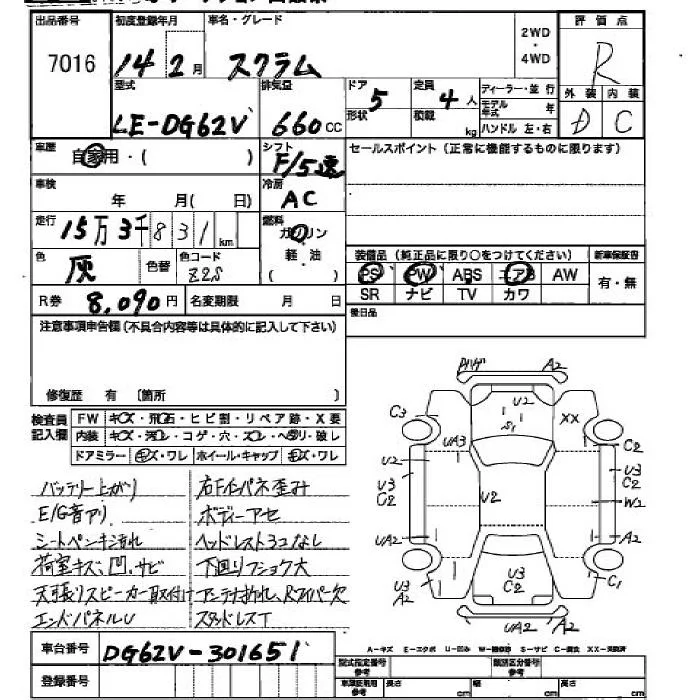 出品番号 初度登録年月 車名・グレード 2WD・4WD 評価点
7016 14年2月 スクラム R
型式 排気量 ドア形状 定員 積載 ディーラー・並行 外装 内装
LE-DG62V 660cc 5 4人 kg モデル年式 年 D C
ハンドル 左・右
車歴 シフト セールスポイント(正常に機能するものに限ります)
自家用・( ) F/5速
車検 冷房
年 月( 日) AC
走行 燃料
15万3千831km ガソリン
軽油
( )
色 色替 色コード
灰 Z2S
装備品(純正品に限り○をつけてください) 新車保証書
PS PW ABS エアB AW 有・無
SR ナビ TV カワ
R券 8,090円 名変期限 月 日
後日品
注意事項申告欄(不具合内容等は具体的に記入して下さい)
修復歴 有 〔箇所 〕
検査員記入欄 FW キズ・飛石・ヒビ割・リペア跡・X要
内装 キズ・汚レ・コゲ・穴・スレ・ヘタリ・破レ
ドアミラー キズ・ワレ ホイール・キャップ キズ・ワレ
バッテリー上がり 右Fインパネ歪み
E/G音アリ ボディーアセ
シートペンキ汚れ ヘッドレスト3コなし
荷室キズ、凹、サビ 下廻りフショク大
天張りスピーカー取付け アンテナ折れ、Rワイパー欠
エンドパネルU スタッドレスT
車台番号 DG62V-301651
登録番号
A2
U2
S1
XX
C3
UA3
C2
U2
U3
C2
U2
U3
C2
W2
UA2
U3
A2
U3
C2
C1
UA2 A2
A-キズ E-エクボ U-凹み W-補修跡 S-サビ C-腐食 XX-交換済
型式指定番号 参考 類別区分番号 参考
車庫証明用 参考 長さ cm 幅 cm 高さ cm